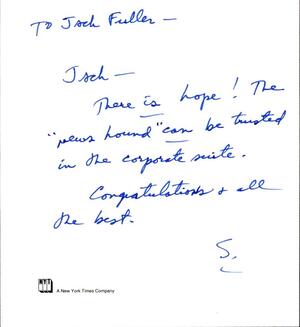 To Jack Fuller —
Jack —
There is hope! The
"news hound" can be trusted
in the corporate suite.
Congratulations & all
the best.
S.
NYT
A New York Times Company